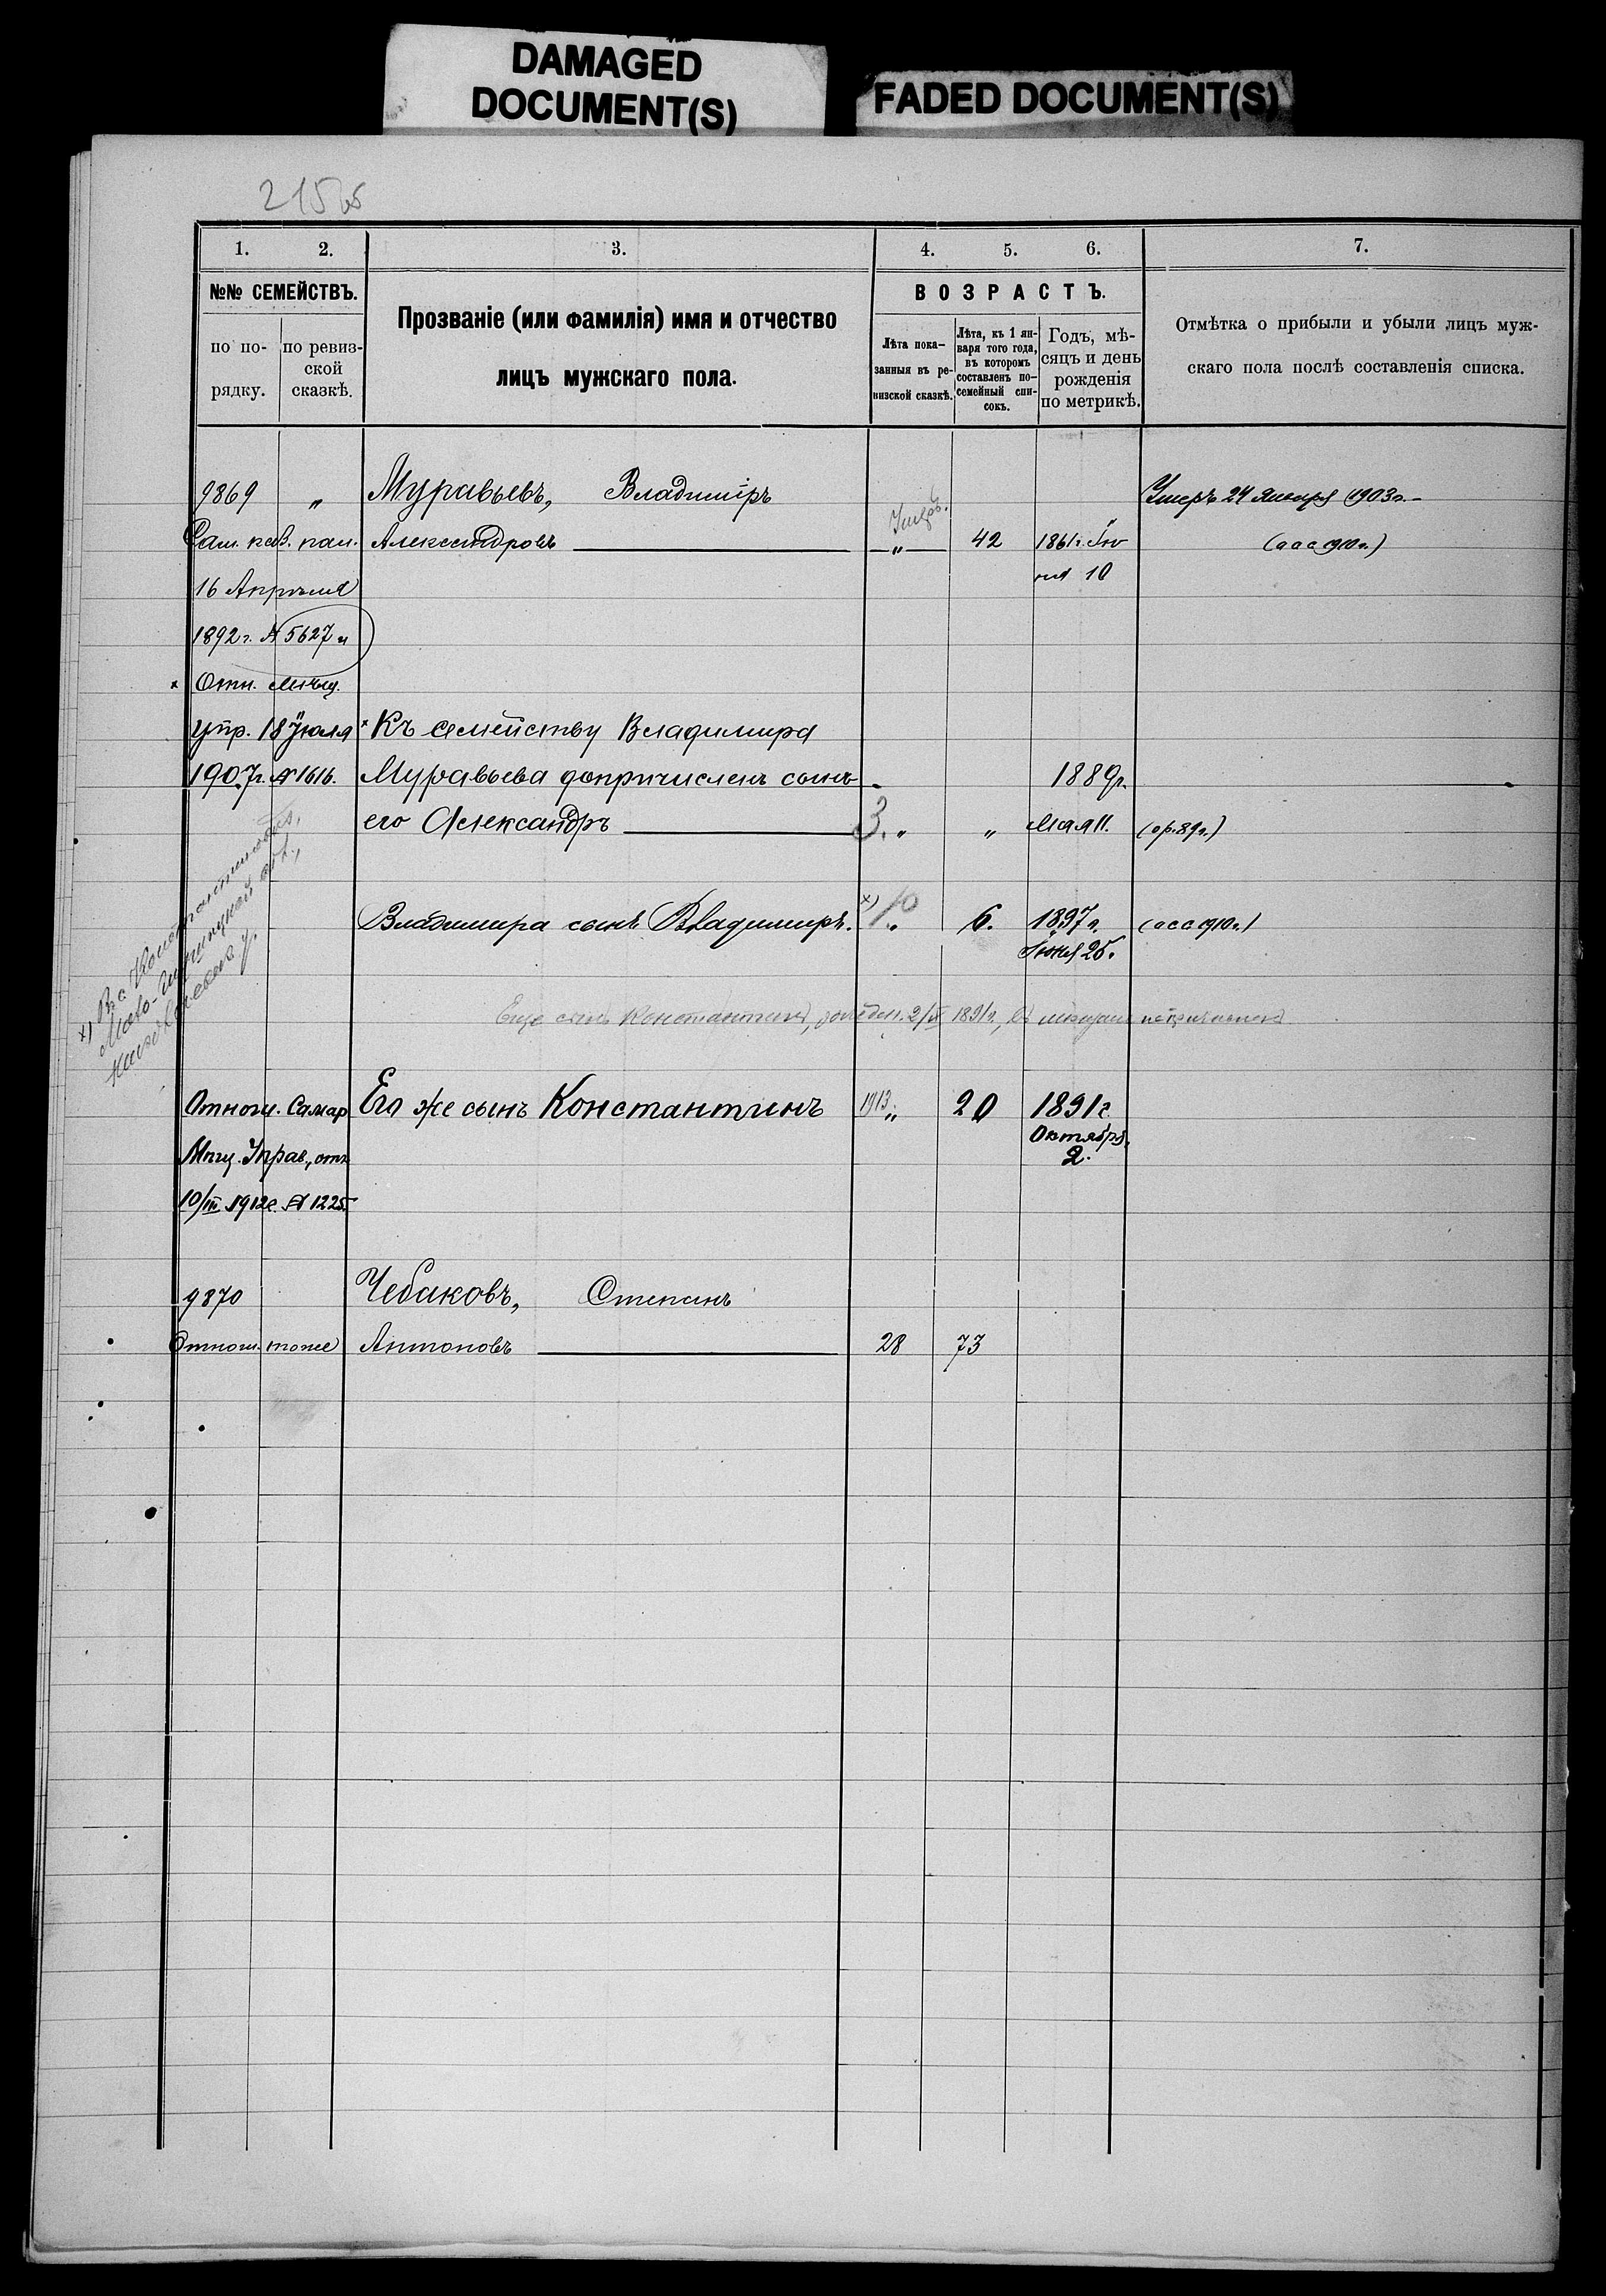 DAMAGED
DOCUMENT(S)
FADED DOCUMENT(S)
215 об
1. 2. 3. 4. 5. 6. 7.
№№ СЕМЕЙСТВЪ.
по по-
рядку.
по ревиз-
ской
сказкѣ.
Прозваніе (или фамилія) имя и отчество
лицъ мужскаго пола.
ВОЗРАСТЪ.
Лѣта пока-
занныя въ ре-
визской сказкѣ.
Лѣта, къ 1 ян-
варя того года,
въ которомъ
составленъ по-
семейный спи-
сокъ.
Годъ, мѣ-
сяцъ и день
рожденія
по метрикѣ.
Отмѣтка о прибыли и убыли лицъ муж-
скаго пола послѣ составленія списка.
9869 " Муравьевъ, Владиміръ Умеръ 24 Января 1903 г.
Сам. каз. пал. Александровъ Умеръ. " 42 1861 г. Iю
ля 10
16 Апрѣля
1892 г. № 5627 и
× Отн. мѣщ.
упр. 18 Іюля × Къ семейству Владимира
1907 г. № 1616. Муравьева допричисленъ сынъ 1889 г.
его Александръ 3. " " Мая 11. (ор. 89 г.)
Владимира сынъ Владимиръ. ×) 10 " 6. 1897 г.
25.
Еще сынъ Константинъ, 2/X 1891 г.,
×)
Отнош. Самар Его же сынъ Константинъ 1913 " 20 1891 г.
Октября
2.
Мѣщ. Управ., отъ
10/III 1912 г. № 1225
9870 Чебаковъ, Степанъ
Отнош. тоже Антоновъ 28 73